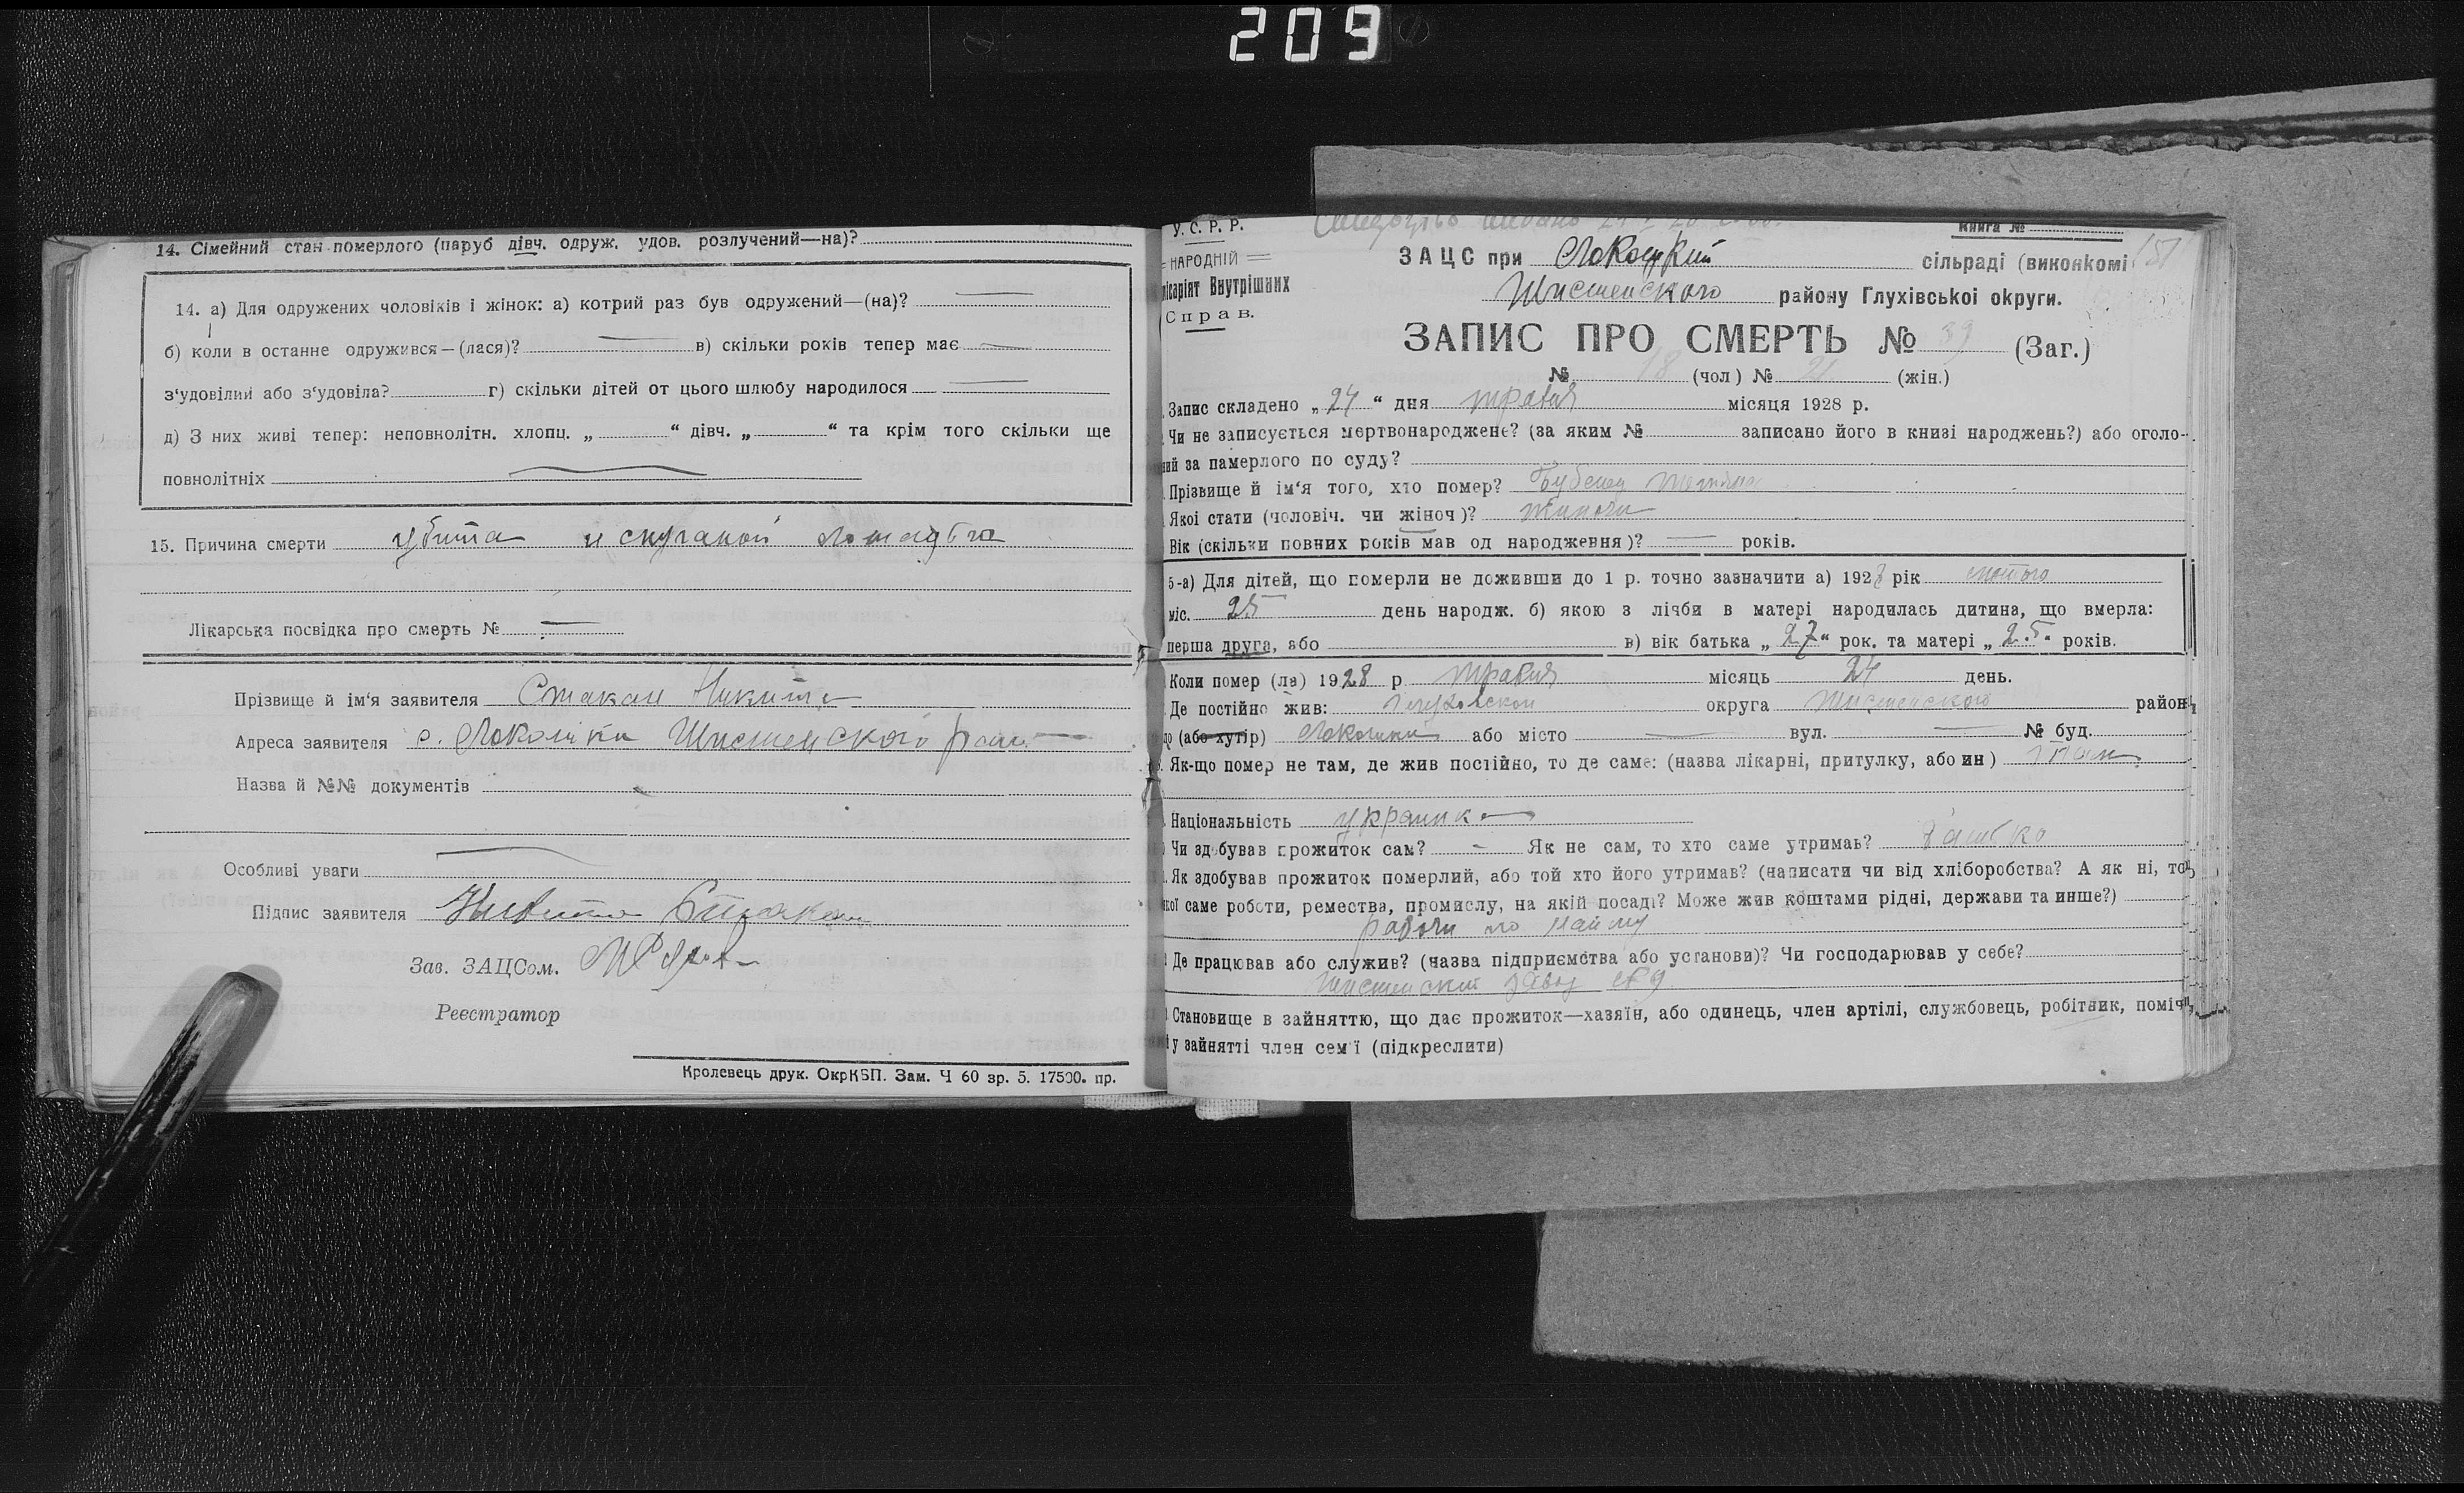 209
14. Сімейний стан померлого (паруб дівч. одруж. удов. розлучений—на)?
14. а) Для одружених чоловіків і жінок: а) котрий раз був одружений—(на)?
б) коли в останне одружився—(лася)? в) скільки років тепер має
з'удовілий або з'удовіла? г) скільки дітей от цього шлюбу народилося
д) З них живі тепер: неповнолітн. хлопц. „ “ дівч. „ “ та крім того скільки ще
повнолітніх
15. Причина смерти убита
Лікарська посвідка про смерть №
Прізвище й ім'я заявителя Стакан Никита
Адреса заявителя с. Локотки
Назва й №№ документів
Особливі уваги
Підпис заявителя Никита Стакан
Зав. ЗАЦСом.
Реєстратор
Кролевець друк. ОкрКВП. Зам. Ч 60 зр. 5. 17500. пр.
У. С. Р. Р.
Книга №
НАРОДНІЙ
ЗАЦС при сільраді (виконкомі
місаріят Внутрішних
району Глухівської округи.
Справ.
ЗАПИС ПРО СМЕРТЬ № 39 (Заг.)
№ 18 (чол) № 21 (жін.)
Запис складено „24“ дня травня місяця 1928 р.
Чи не записується мертвонароджене? (за яким № записано його в книзі народжень?) або оголо-
ний за памерлого по суду?
Прізвище й ім'я того, хто помер?
Якої стати (чоловіч. чи жіноч)? жиноча
Вік (скільки повних років мав од народження)? — років.
5-а) Для дітей, що померли не доживши до 1 р. точно зазначити а) 1928 рік лютого
міс. 25 день народж. б) якою з лічби в матері народилась дитина, що вмерла:
перша друга, або в) вік батька „27“ рок. та матері „25“ років.
Коли помер (ла) 1928 р травня місяць 24 день.
Де постійно жив: округа район
(або хутір) Локотки або місто вул. № буд.
Як-що помер не там, де жив постійно, то де саме: (назва лікарні, притулку, або ин) там
Національність украинка
Чи здобував прожиток сам? - Як не сам, то хто саме утримав? батько
Як здобував прожиток померлий, або той хто його утримав? (написати чи від хліборобства? А як ні, то
кої саме роботи, ремества, промислу, на якій посаді? Може жив коштами рідні, держави та инше?)
работи по найму
Де працював або служив? (назва підприємства або установи)? Чи господарював у себе?
Становище в зайняттю, що дає прожиток—хазяїн, або одинець, член артілі, службовець, робітник, поміч
у зайнятті член сем'ї (підкреслити)